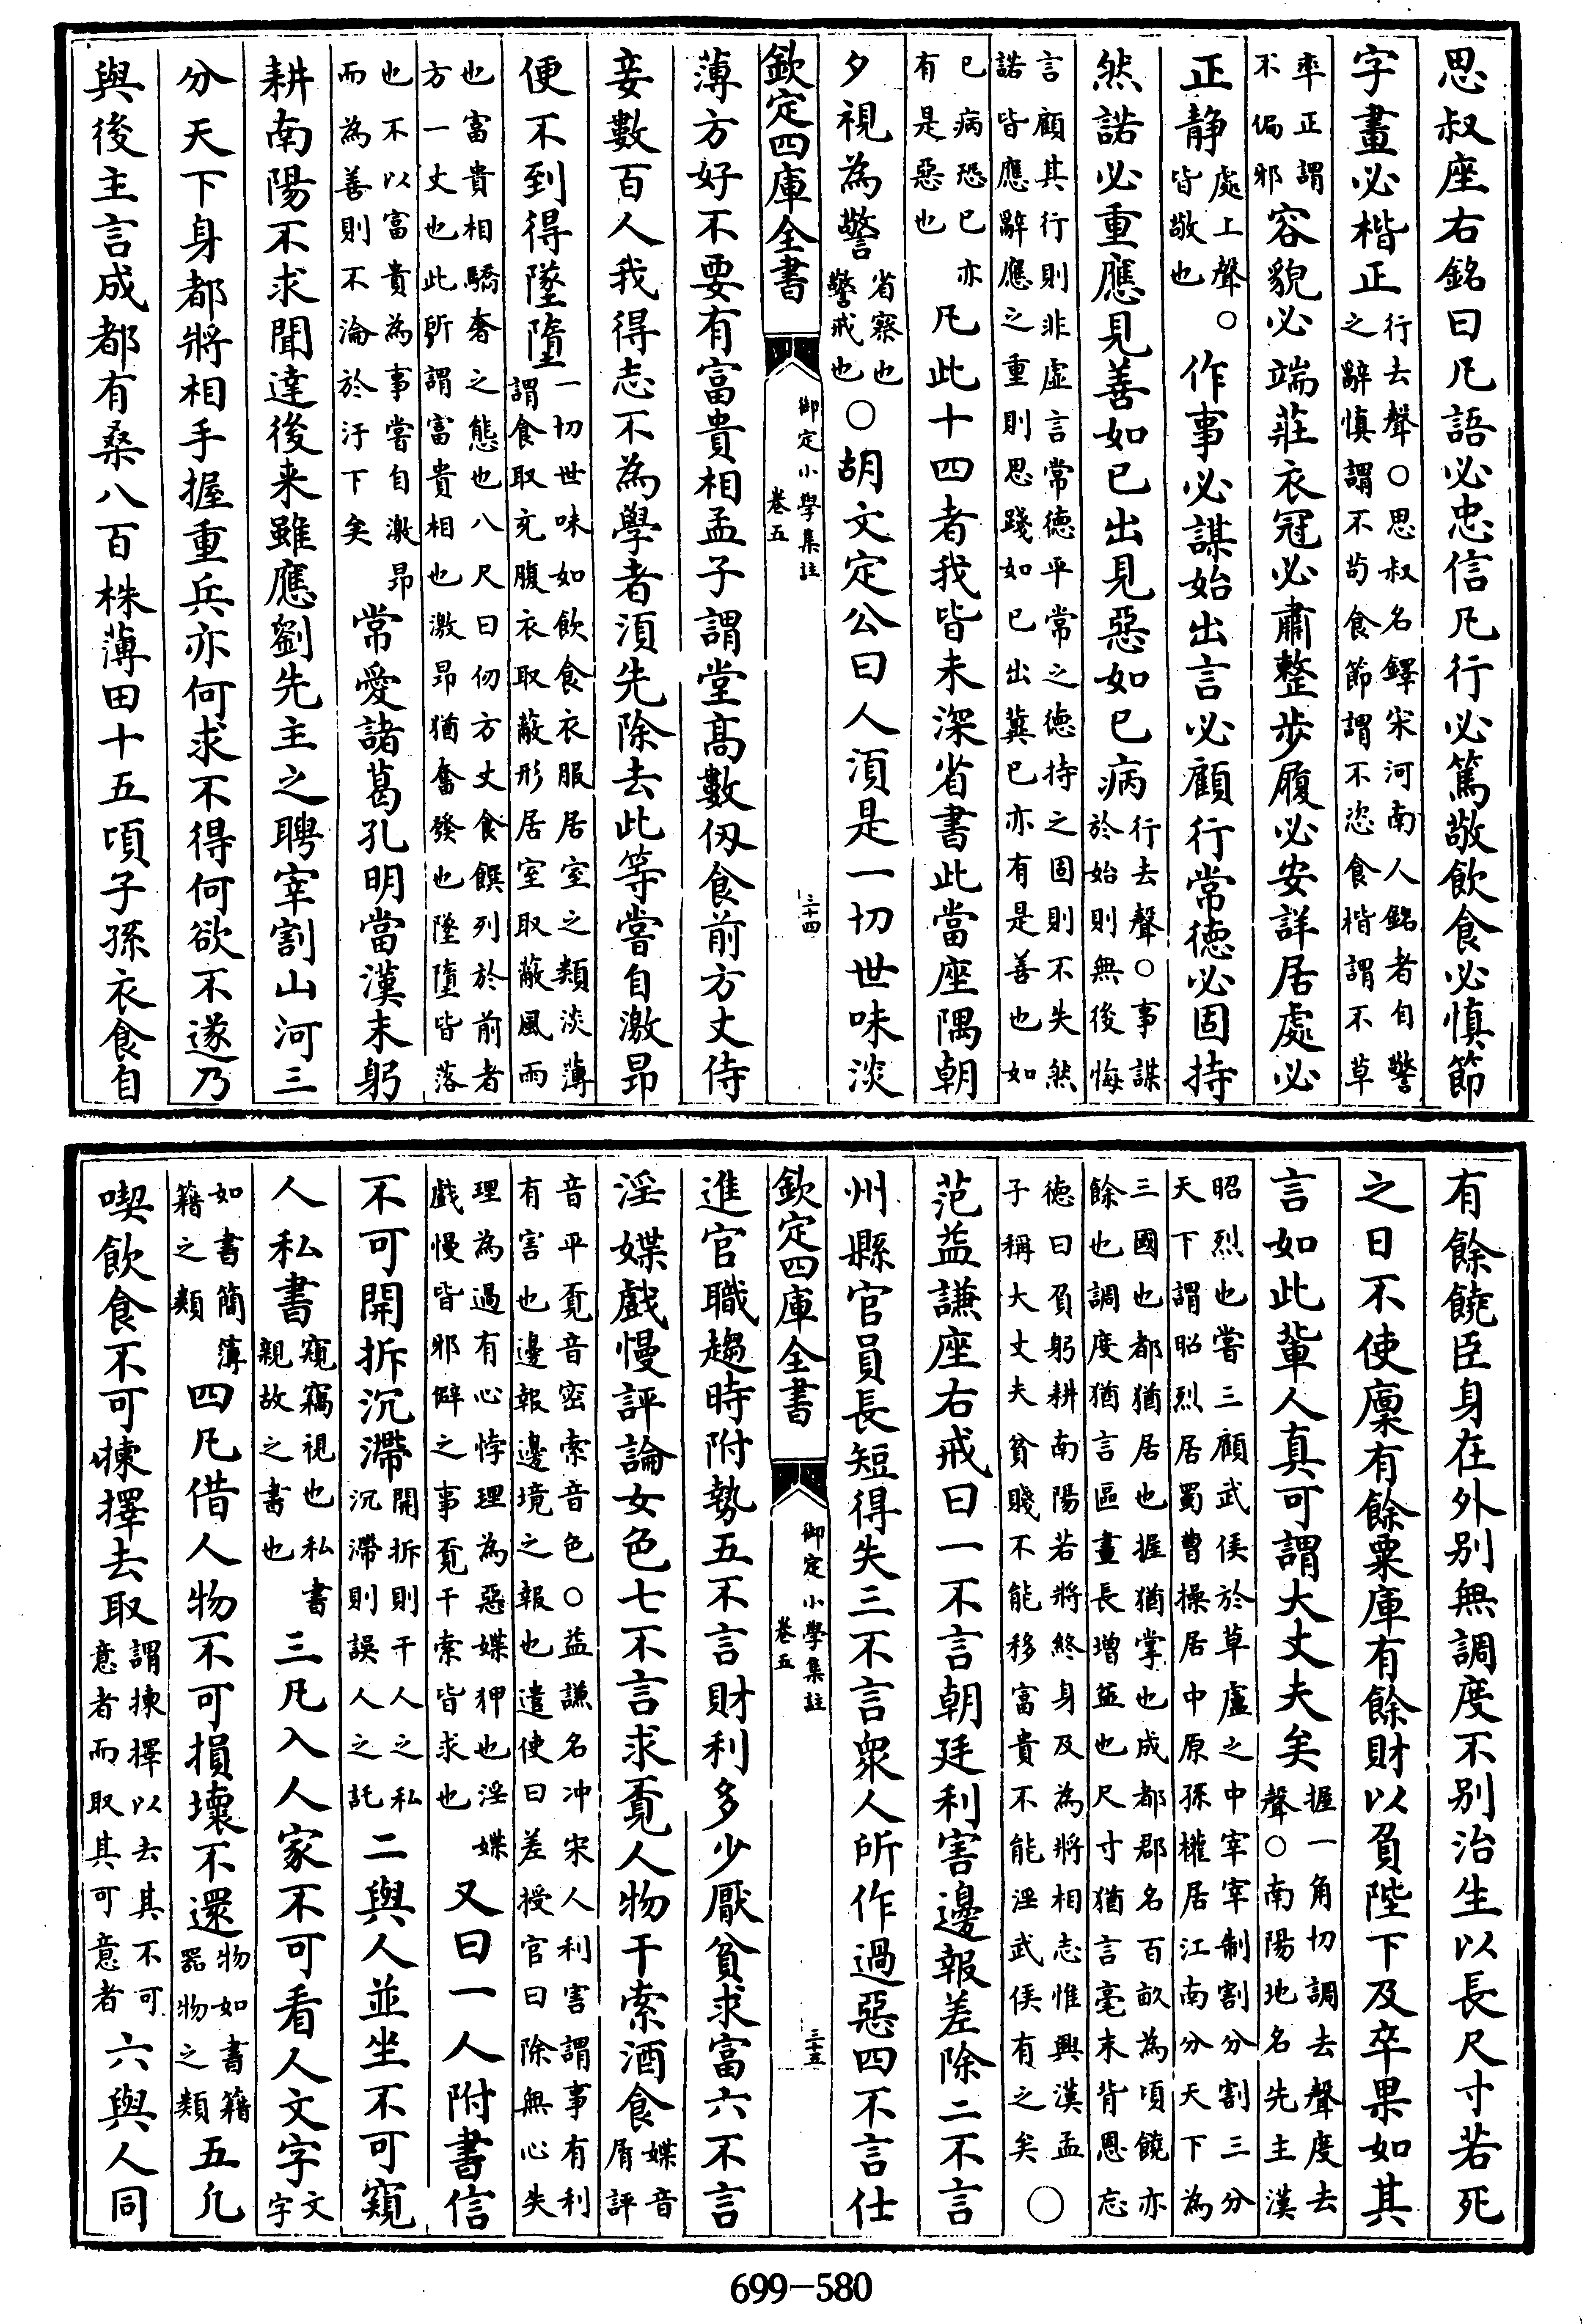 思叔座右銘曰凡語必忠信凡行必篤敬飲食必慎節
字畫必楷正行去聲○思叔名鐸宋河南人銘者自警之辭慎謂不茍食節謂不恣食楷謂不草
率正謂不偏邪容貌必端莊衣冠必肅整步履必安詳居處必
正静處上聲○皆敬也作事必謀始出言必顧行常徳必固持
然諾必重應見善如已出見惡如已病行去聲○事謀於始則無後悔
言顧其行則非虚言常徳平常之徳持之固則不失然諾皆應辭應之重則思踐如已出冀已亦有是善也如
已病恐已亦有是惡也凡此十四者我皆未深省書此當座隅朝
夕視為警省察也警戒也○胡文定公曰人須是一切世味淡
欽定四庫全書
御定小學集註
卷五
三十四
薄方好不要有富貴相孟子謂堂高數仭食前方丈侍
妾數百人我得志不為學者須先除去此等嘗自激昂
便不到得墜墮一切世味如飲食衣服居室之類淡薄謂食取充腹衣取蔽形居室取蔽風雨
也富貴相驕奢之態也八尺曰仞方丈食饌列於前者方一丈也此所謂富貴相也激昂猶奮發也墜墮皆落
也不以富貴為事嘗自激昂而為善則不淪於汙下矣常愛諸葛孔明當漢末躬
耕南陽不求聞達後来雖應劉先主之聘宰割山河三
分天下身都將相手握重兵亦何求不得何欲不遂乃
與後主言成都有桑八百株薄田十五頃子孫衣食自
有餘饒臣身在外别無調度不别治生以長尺寸若死
之日不使廩有餘粟庫有餘財以負陛下及卒果如其
言如此輩人真可謂大丈夫矣握一角切調去聲度去聲○南陽地名先主漢
昭烈也嘗三顧武侯於草廬之中宰宰制割分割三分天下謂昭烈居蜀曹操居中原孫權居江南分天下為
三國也都猶居也握猶掌也成都郡名百畝為頃饒亦餘也調度猶言區畫長增益也尺寸猶言毫末背恩忘
徳曰負躬耕南陽若將終身及為將相志惟興漢孟子稱大丈夫貧賤不能移富貴不能淫武侯有之矣○
范益謙座右戒曰一不言朝廷利害邊報差除二不言
州縣官員長短得失三不言衆人所作過惡四不言仕
欽定四庫全書
御定小學集註
卷五
三十五
進官職趨時附勢五不言財利多少厭貧求富六不言
淫媟戲慢評論女色七不言求覔人物干索酒食媟音屑評
音平覔音密索音色○益謙名冲宋人利害謂事有利有害也邊報邊境之報也遣使曰差授官曰除無心失
理為過有心悖理為惡媟狎也淫媟戲慢皆邪僻之事覔干索皆求也又曰一人附書信
不可開拆沉滯開拆則干人之私沉滯則誤人之託二與人並坐不可窺
人私書窺竊視也私書親故之書也三凡入人家不可看人文字文字
如書簡簿籍之類四凡借人物不可損壞不還物如書籍器物之類五凡
喫飲食不可揀擇去取謂揀擇以去其不可意者而取其可意者六與人同
699-580